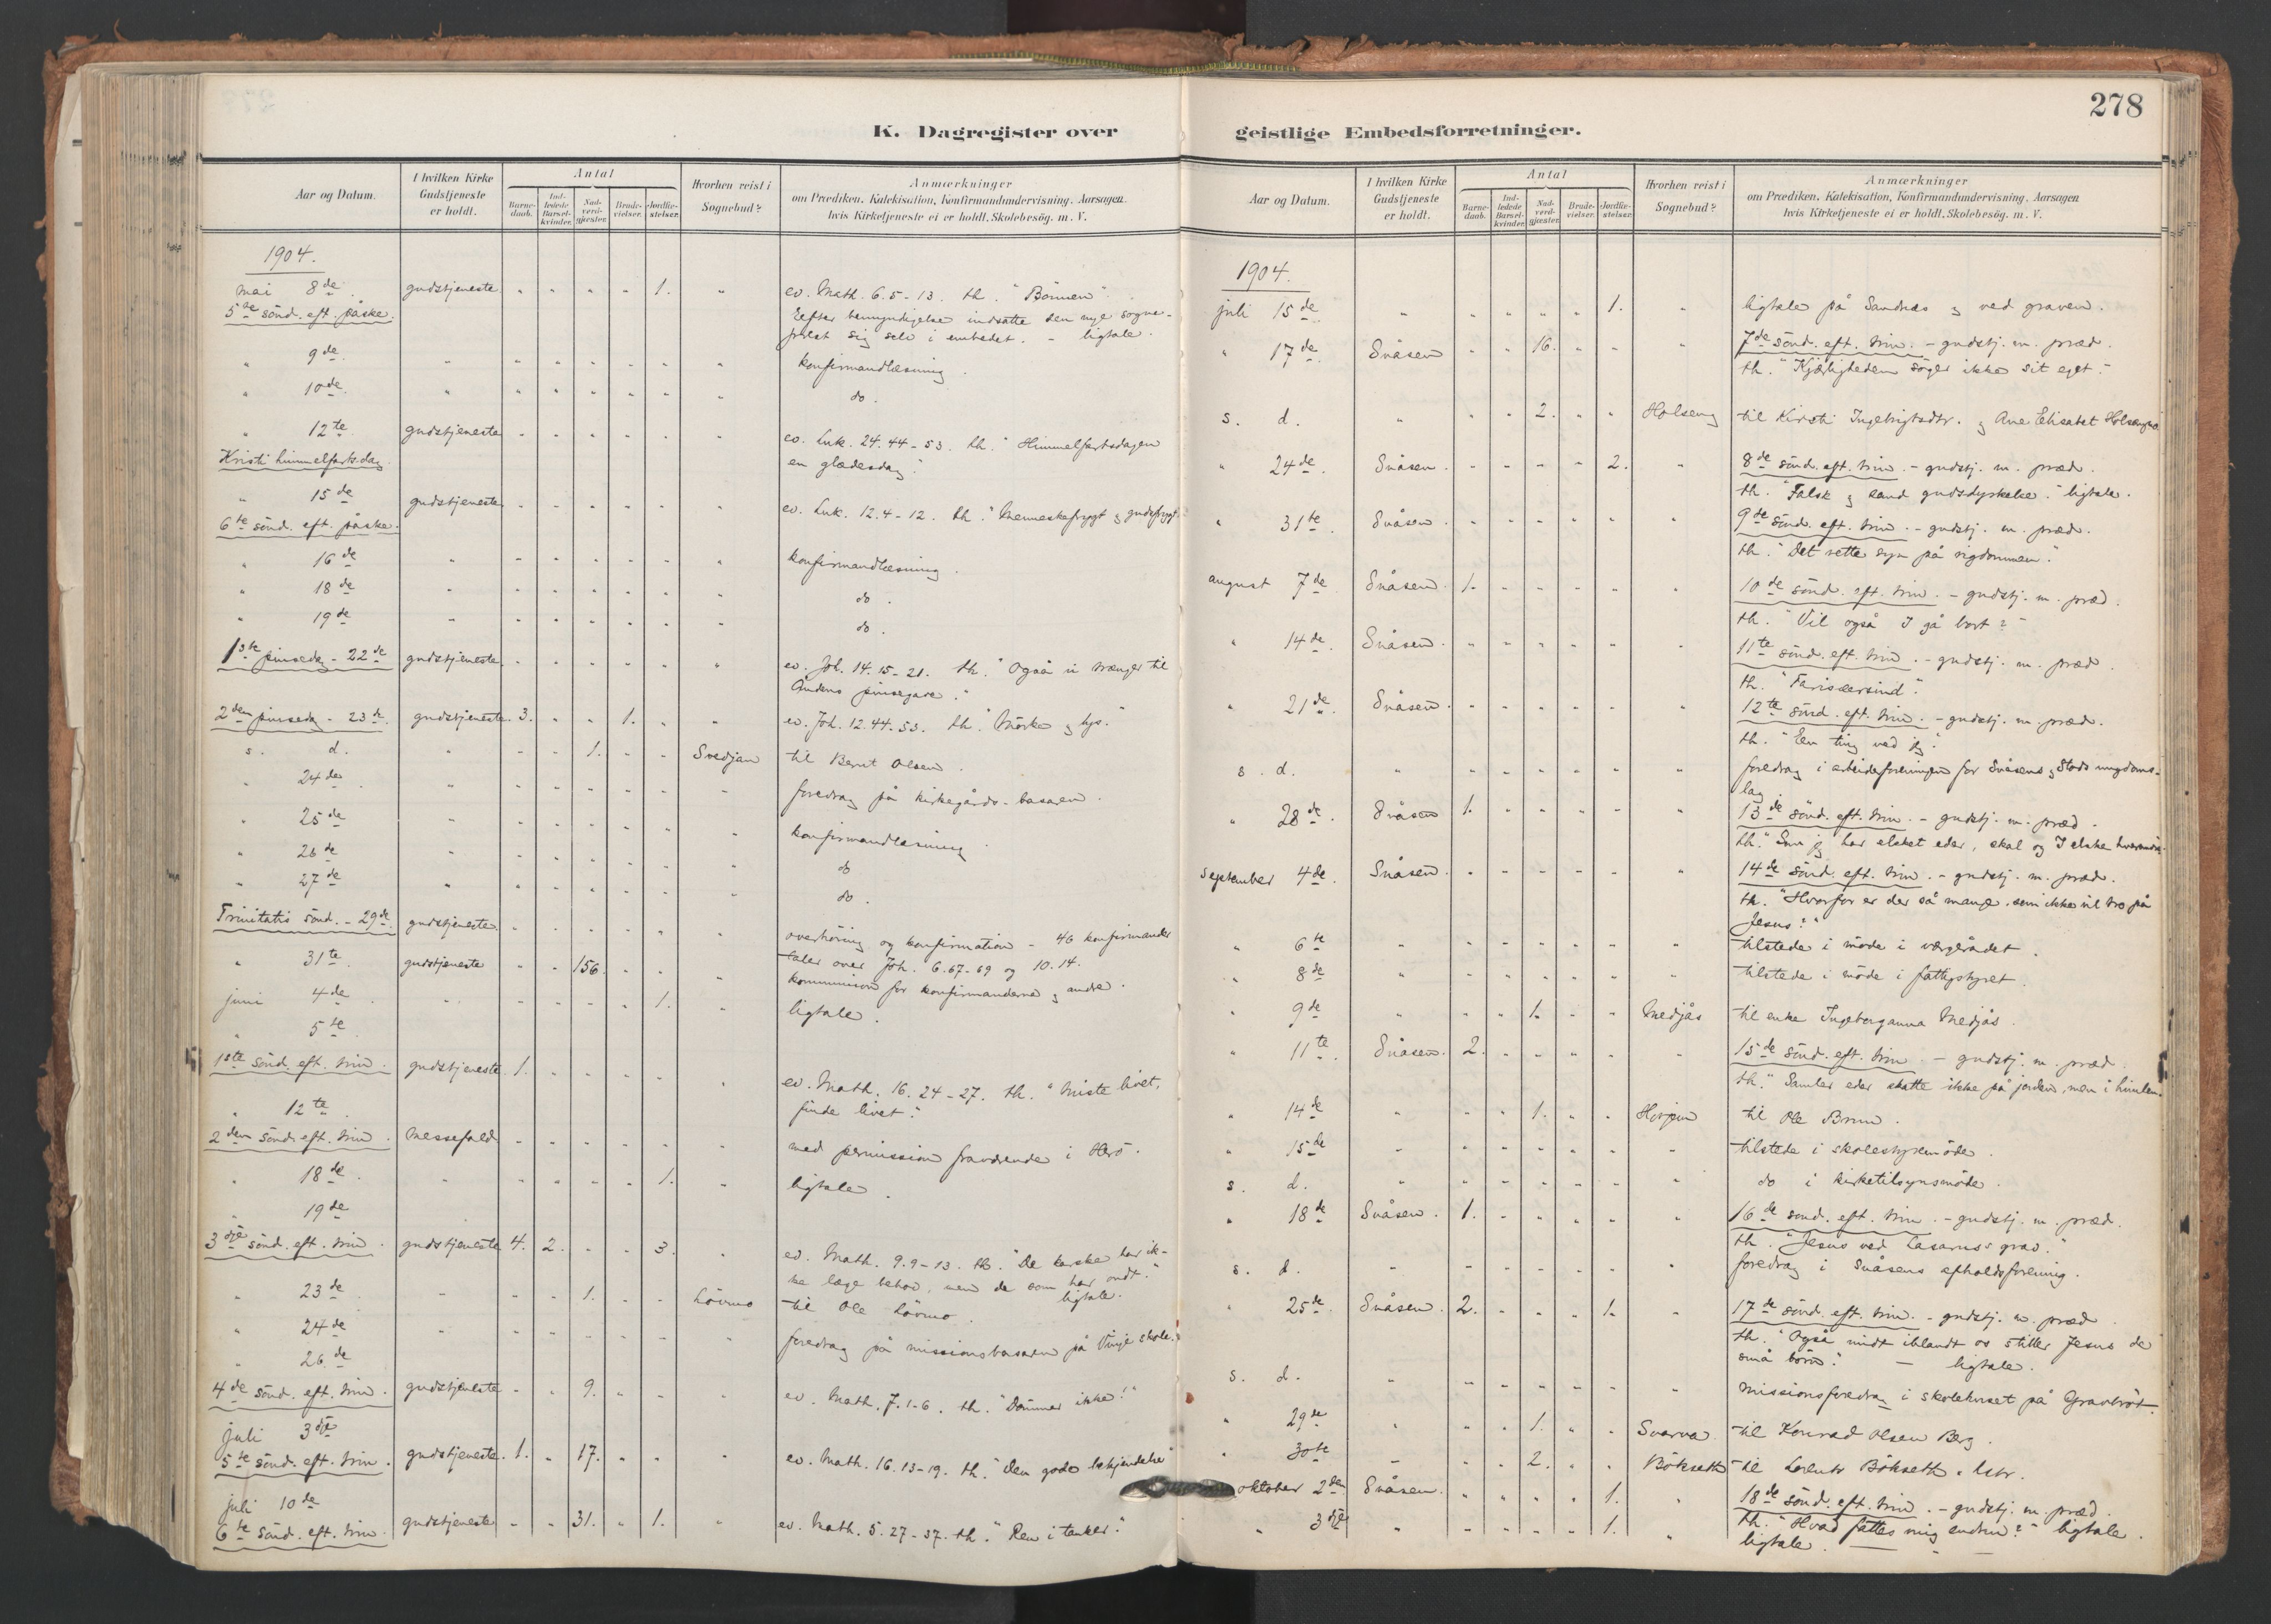 278
K. Dagregister over
geistlige Embedsforretninger.
Aar og Datum.
I hvilken Kirke Gudstjeneste er holdt.
Antal
Barne-daab.
Ind-ledede Barsel-kvinder.
Nad-verd-gjester.
Brude-vielser.
Jordfæ-stelser.
Hvorhen reist i Sognebud?
Anmærkninger
om Prædiken, Katekisation, Konfirmandundervisning. Aarsagen
hvis Kirketjeneste ei er holdt. Skolebesög. m. V.
1904.
mai 8de gudstjeneste " " " " 1. " ev. Math. 6.5-13. th. "Bönnen".
5te sönd. eft. påske. Efter bemyndigelse indsatte den nye sogne-
prest sig selv i embedet. - ligtale.
" 9de " " " " " " " konfirmandlæsning.
" 10de " " " " " " " do.
" 12te gudstjeneste " " " " " " ev. Luk. 24.44-53. th. "Himmelfartsdagen
Kristi himmelfartsdag. en glædesdag."
" 15de gudstjeneste " " " " " " ev. Luk. 12.4-12. th. "Menneskefrygt og gudsfrygt
6te sönd. eft. påske.
" 16de " " " " " " " konfirmandlæsning.
" 18de " " " " " " " do.
" 19de " " " " " " " do.
1ste pinsedag - 22de gudstjeneste " " " " " " ev. Joh. 14.15-21. th. "Også vi trænger til
Åndens pinsegave."
2den pinsedag - 23de gudstjeneste. 3. " " 1. " " ev. Joh. 12.44-53. th. "Mörke og lys."
s. d. " " " 1. " " Svedjan til Bernt Olsen.
" 24de " " " " " " " foredrag på kirkegårds-basaren.
" 25de " " " " " " " konfirmandlæsning
" 26de " " " " " " " do
" 27de " " " " " " " do.
Trinitatis sönd. - 29de gudstjeneste " " " " " " overhöring og konfirmation - 46 konfirmander
taler over Joh. 6.67-69 og 10.14.
" 31te gudstjeneste " " 156. " " " kommunion for konfirmanderne og andre.
juni 4de " " " " " 1. " ligtale.
" 5te
1ste sönd. eft. trin. gudstjeneste 1. " " " " " ev. Math. 16.24-27. th. "Miste livet,
finde livet."
" 12te
2den sönd. eft. trin. Messefald " " " " " " med permission fraværende i Herö.
" 18de " " " " " 1. " ligtale.
" 19de
3dje sönd. eft. trin. gudstjeneste 4. 2. " " 3. " ev. Math. 9.9-13. th. "De karske har ik-
ke læge behov, men de som har ondt."
ligtale.
" 23de " " " 1. " " Lövmo til Ole Lövmo.
" 24de " " " " " " " foredrag på missionsbasaren på Vinje skole.
" 26de
4de sönd. eft. trin. gudstjeneste " " 9. " " " ev. Math. 7.1-6. th. "Dömmer ikke!"
juli 3dje
5te sönd. eft. trin. gudstjeneste. 1. " 17. " " " ev. Math. 16.13-19. th. "Den gode bekjendelse"
juli 10de
6te sönd. eft. trin. gudstjeneste " " 31. " 1. " ev. Math. 5.27-37. th. "Ren i tanker."
Aar og Datum.
I hvilken Kirke Gudstjeneste er holdt.
Antal
Barne-daab.
Ind-ledede Barsel-kvinder.
Nad-verd-gjester.
Brude-vielser.
Jordfæ-stelser.
Hvorhen reist i Sognebud?
Anmærkninger
om Prædiken, Katekisation, Konfirmandundervisning. Aarsagen
hvis Kirketjeneste ei er holdt. Skolebesög. m. V.
1904.
juli 15de " " " " " 1. " ligtale på Sandnæs og ved graven.
" 17de Snåsen " " 16. " " " 7de sönd. eft. trin. - gudstj. m. præd.
th. "Kjærligheden söger ikke sit eget."
s. d. " " " 2. " " Holseng til Kirsti Ingebrigtsdtr. og Ane Elisabet
" 24de. Snåsen. " " " " 2. " 8de sönd. eft. trin. - gudstj. m. præd.
th. "Falsk og sand gudsdyrkelse." ligtale.
" 31te. Snåsen. " " " " " " 9de sönd. eft. trin. - gudstj. m. præd.
th. "Det rette syn på rigdommen."
august 7de Snåsen. 1. " " " " " 10de sönd. eft. trin. - gudstj. m. præd.
th. "Vil også I gå bort?"
" 14de Snåsen. " " " " " " 11te sönd. eft. trin. - gudstj. m. præd.
th. "Farisæersind."
" 21de. Snåsen. " " " " " " 12te sönd. eft. trin. - gudstj. m. præd.
th. "Een ting ved jeg."
s. d. " " " " " " " foredrag i arbeiderforeningen for Snåsens og Stods ungdoms-
lag.
" 28de. Snåsen 1. " " " " " 13de sönd. eft. trin. - gudstj. m. præd.
th. "Som jeg har elsket eder, skal og I elske hverandre."
september 4de. Snåsen. " " " " " " 14de sönd. eft. trin. - gudstj. m. præd.
th. "Hvorfor er der så mange, som ikke vil tro på
Jesus?"
" 6te " " " " " " " tilstede i möde i værgerådet.
" 8de " " " " " " " tilstede i möde i fattigstyret.
" 9de " " " 1. " " Medjås til enke Ingeborganna Medjås.
" 11te. Snåsen. 2. " " " " " 15de sönd. eft. trin. - gudstj. m. præd.
th. "Samler eder skatte ikke på jorden, men i himlen."
" 14de " " " 1. " " til Ole Brun.
" 15de " " " " " " " tilstede i skolestyremöde.
s. d. " " " " " " " do i kirketilsynsmöde.
" 18de Snåsen. 1. " " " " " 16de sönd. eft. trin. - gudstj. m. præd.
th. "Jesus ved Lasarus's grav."
s. d. " " " " " " " foredrag i Snåsens afholdsforening.
" 25de. Snåsen. 2. " " " 1. " 17de sönd. eft. trin. - gudstj. m. præd.
th. "Også midt iblandt os stiller Jesus de
små börn." - ligtale.
s. d. " " " " " " " missionsforedrag i skolehuset på Gravbröt.
" 29de " " " 1. " " Svarva til Konrad Olsen Berg.
" 30te " " " 2. " " Bökseth til Lorents Bökseth + hstr.
oktober 2den Snåsen. " " " " 1. " 18de sönd. eft. trin. - gudstj. m. præd.
th. "Hvad fattes mig endnu?" ligtale.
" 3dje " " " " " 1. " ligtale.